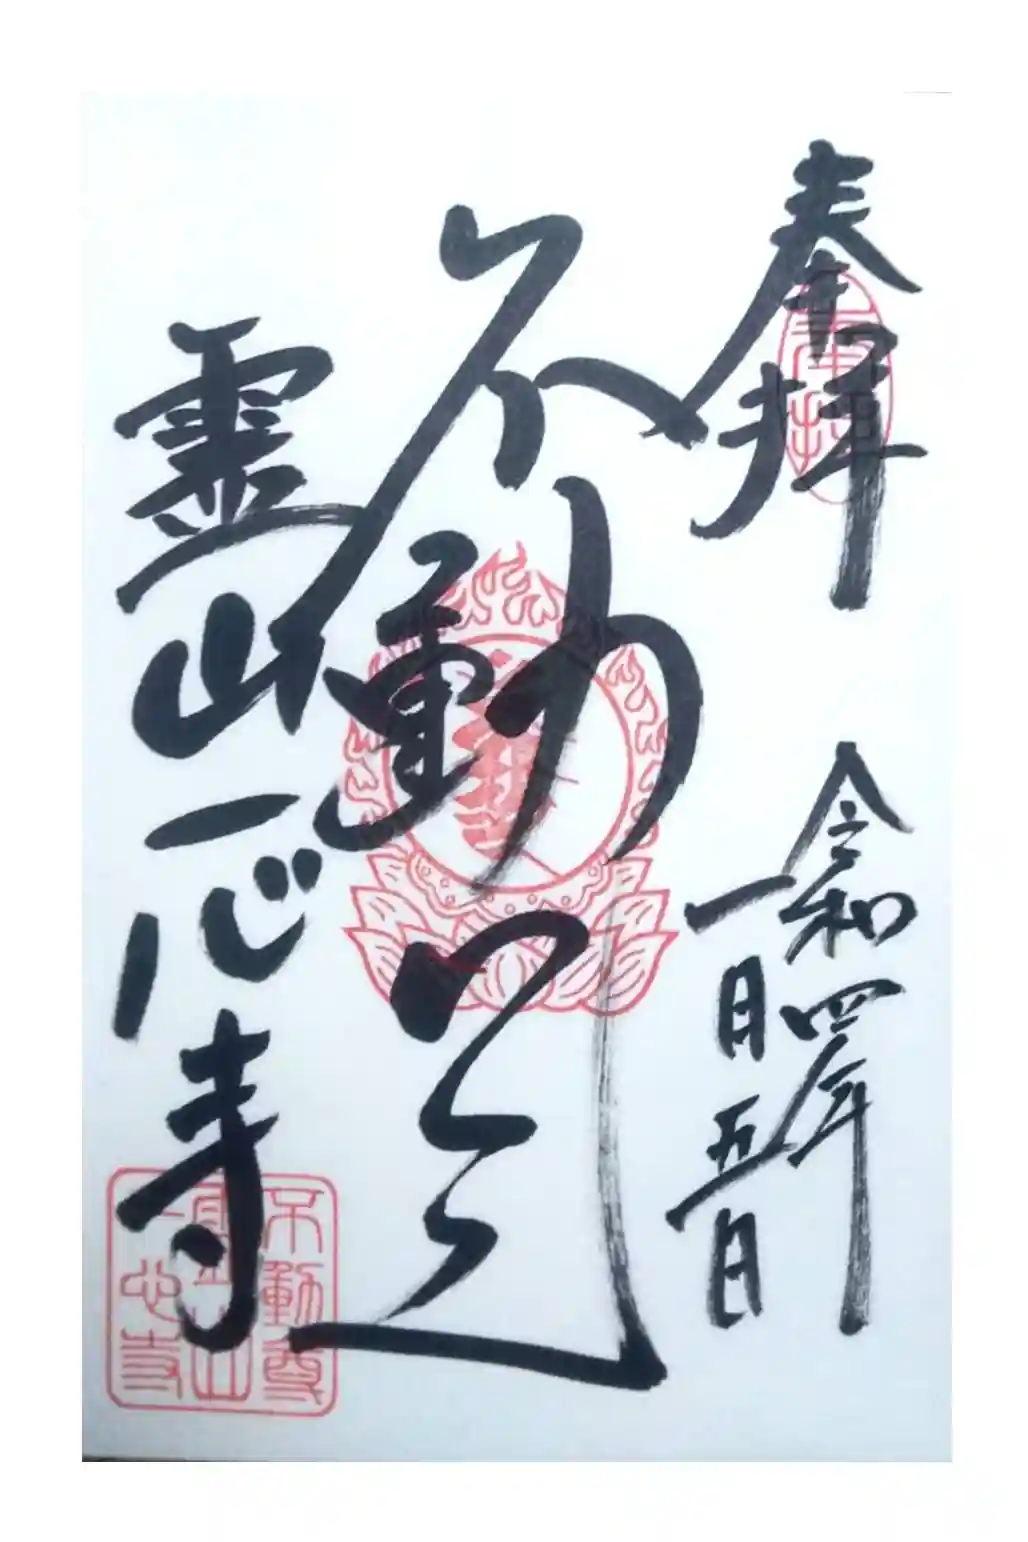 奉拝
令和四年
一月五日
不動
霊山一心寺
奉拝
不動尊
霊山
一心寺